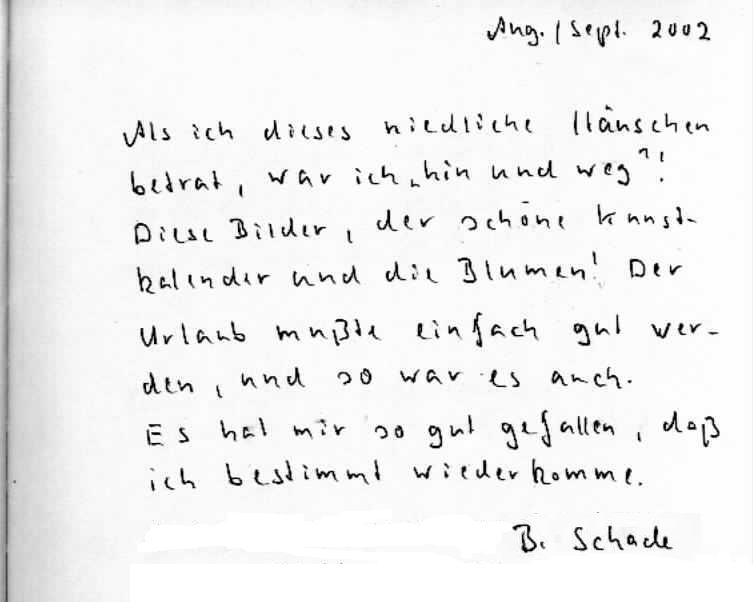 Aug. / Sept. 2002
Als ich dieses niedliche Häuschen
betrat, war ich „hin und weg"!
Diese Bilder, der schöne Kunst-
kalender und die Blumen! Der
Urlaub mußte einfach gut wer-
den, und so war es auch.
Es hat mir so gut gefallen, daß
ich bestimmt wiederkomme.
B. Schade